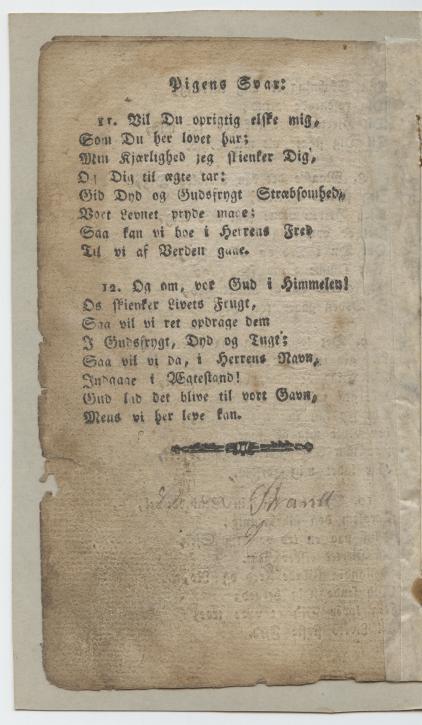 Pigens Svar:
11. Vil Du oprigtig elske mig,
Som Du her lovet har;
Min Kjærlighed jeg skienker Dig,
Og Dig til ægte tar:
Gid Dyd og Gudsfrygt Stræbsomhed,
Vort Levnet pryde maae;
Saa kan vi boe i Herrens Fred
Til vi af Verden gaae.
12. Og om, vor Gud i Himmelen!
Os skienker Livets Frugt,
Saa vil vi ret opdrage dem
I Gudsfrygt, Dyd og Tugt;
Saa vil vi da, i Herrens Navn,
Indgaae i Ægtestand!
Gud lad det blive til vort Gavn,
Mens vi her leve kan.